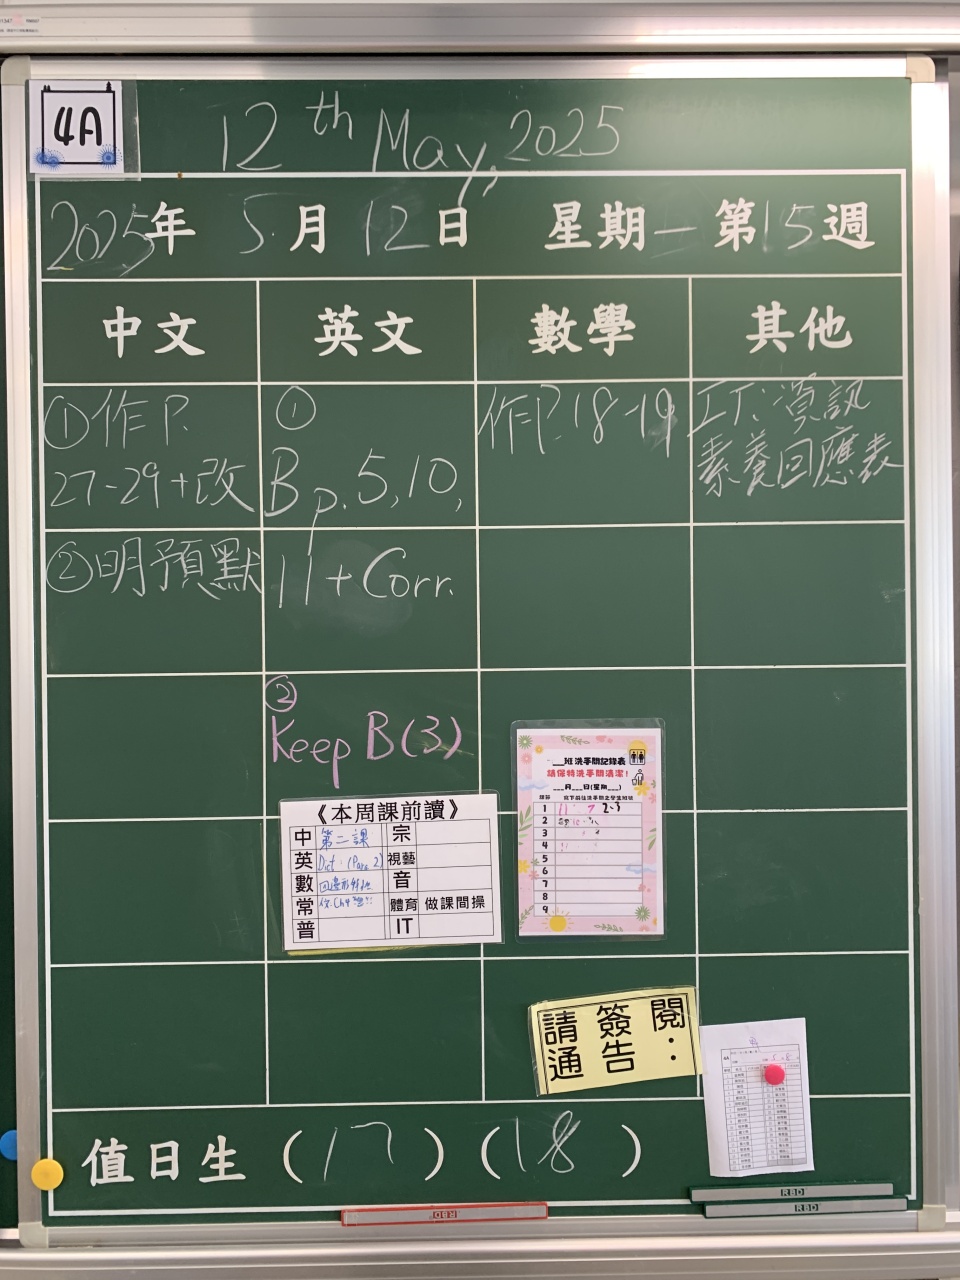 4A
12th May, 2025
2025年 5月 12日 星期一 第15週
中文 英文 數學 其他
①作P. 27-29+改
②明預默
① Bp. 5, 10, 11 + Corr.
② Keep B(3)
作P. 18-19
IT: 資訊素養回應表
《本周課前讀》
中 第二課 宗
英 Dict. (Para 2) 視藝
數 四邊形 音
常 體育 做課間操
普 IT
___班洗手間記錄表
請保持洗手間清潔！
___月___日(星期___)
1 11 7 23
2
3
4
5
6
7
8
9
請簽閱
通告：
值日生 (17) (18)
RBD
RBD
RBD